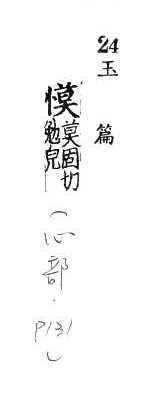 24
玉篇
慔莫固切
勉皃
(心部·P131)